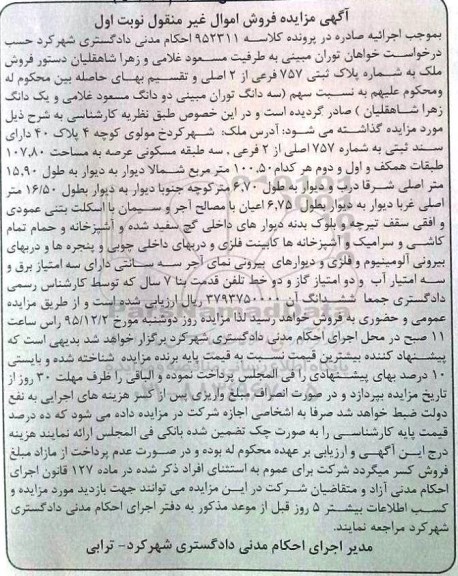 آگهی مزایده فروش اموال غیر منقول نوبت اول
بموجب اجرائیه صادره در پرونده کلاسه ۹۵۲۳۱۱ احکام مدنی دادگستری شهرکرد حسب
درخواست خواهان توران مبینی به طرفیت مسعود غلامی و زهرا شاهقلیان دستور فروش
ملک به شماره پلاک ثبتی ۷۵۷ فرعی از ۲ اصلی و تقسیم بهای حاصله بین محکوم له
ومحکوم علیهم به نسبت سهم (سه دانگ توران مبینی دو دانگ مسعود غلامی و یک دانگ
زهرا شاهقلیان ) صادر گردیده است و در این خصوص طبق نظریه کارشناسی به شرح ذیل
مورد مزایده گذاشته می شود: آدرس ملک: شهرکردخ مولوی کوچه ۴ پلاک ۴۰ دارای
سند ثبتی به شماره ۷۵۷ اصلی از ۲ فرعی . سه طبقه مسکونی عرصه به مساحت ۱۰۷،۸۰
طبقات همکف و اول و دوم هر کدام ۱۰۰،۵۰ متر مربع شمالا دیوار به دیوار به طول ۱۵،۹۰
متر اصلی شرقا درب و دیوار به طول ۶،۷۰ مترکوچه جنوبا دیوار به دیوار بطول ۱۶/۵۰ متر
اصلی غربا دیوار به دیوار بطول ۶،۷۵ اعیان با مصالح آجر و سیمان با اسکلت بتنی عمودی
و افقی سقف تیرچه و بلوک بدنه دیوار های داخلی گچ سفید شده و آشپزخانه و حمام تمام
کاشی و سرامیک و آشپزخانه ها کابینت فلزی و دربهای داخلی چوبی و پنجره ها و دربهای
بیرونی آلومینیوم و فلزی و دیوارهای بیرونی نمای آجر سه سانتی دارای سه امتیاز برق و
سه امتیاز آب و دو امتیاز گاز و دو خط تلفن قدمت بنا ۷ سال که توسط کارشناس رسمی
دادگستری جمعا ششدانگ آن ۳۷۹۳۷۵۰۰۰۰ ریال ارزیابی شده است و از طریق مزایده
عمومی و حضوری به فروش خواهد رسید لذا مزایده روز دوشنبه مورخ ۹۵/۱۲/۲ راس ساعت
۱۱ صبح در محل اجرای احکام مدنی دادگستری شهرکرد برگزار خواهد شد بدیهی است که
پیشنهاد کننده بیشترین قیمت نسبت به قیمت پایه برنده مزایده شناخته شده و بایستی
۱۰ درصد بهای پیشنهادی را فی المجلس پرداخت نموده و الباقی را ظرف مهلت ۳۰ روز از
تاریخ مزایده بپردازد و در صورت انصراف مبلغ واریزی پس از کسر هزینه های اجرایی به نفع
دولت ضبط خواهد شد صرفا به اشخاصی اجازه شرکت در مزایده داده می شود که ده درصد
قیمت پایه کارشناسی را به صورت چک تضمین شده بانکی فی المجلس ارائه نمایند هزینه
درج این آگهی و ارزیابی بر عهده محکوم له بوده و در صورت عدم پرداخت از مازاد مبلغ
فروش کسر میگردد شرکت برای عموم به استثنای افراد ذکر شده در ماده ۱۲۷ قانون اجرای
احکام مدنی آزاد و متقاضیان شرکت در این مزایده می توانند جهت بازدید مورد مزایده و
کسب اطلاعات بیشتر ۵ روز قبل از موعد مذکور به دفتر اجرای احکام مدنی دادگستری
شهرکرد مراجعه نمایند.
مدیر اجرای احکام مدنی دادگستری شهرکرد- ترابی